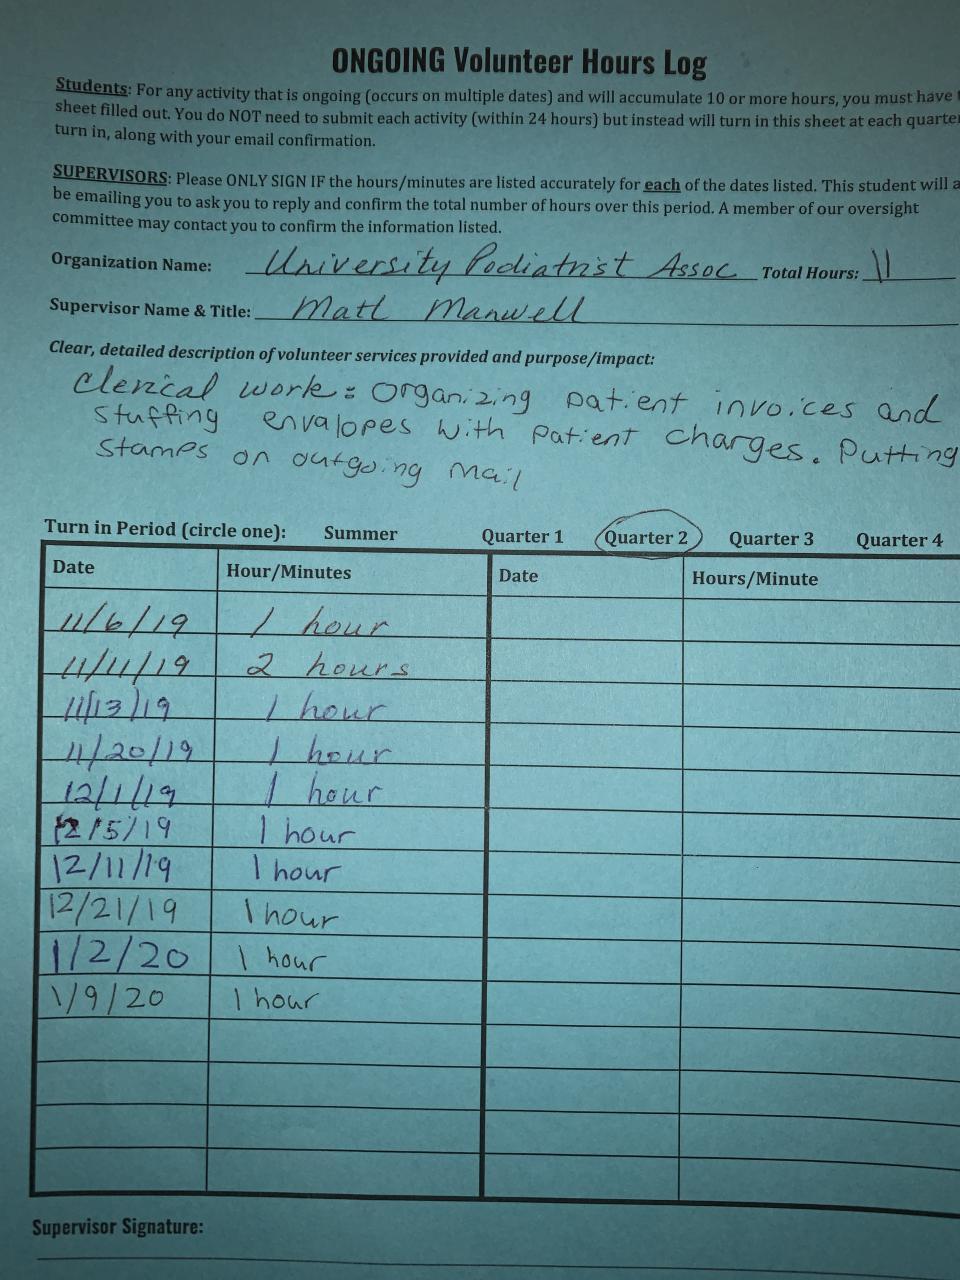 ONGOING Volunteer Hours Log
Students: For any activity that is ongoing (occurs on multiple dates) and will accumulate 10 or more hours, you must have
sheet filled out. You do NOT need to submit each activity (within 24 hours) but instead will turn in this sheet at each quarter
turn in, along with your email confirmation.
SUPERVISORS: Please ONLY SIGN IF the hours/minutes are listed accurately for each of the dates listed. This student will a
be emailing you to ask you to reply and confirm the total number of hours over this period. A member of our oversight
committee may contact you to confirm the information listed.
Organization Name: University Podiatrist Assoc Total Hours: 11
Supervisor Name & Title: Matt Manwell
Clear, detailed description of volunteer services provided and purpose/impact:
Clerical work: Organizing patient invoices and
stuffing envalopes with patient charges. Putting
stamps on outgoing mail
Turn in Period (circle one): Summer Quarter 1 Quarter 2 Quarter 3 Quarter 4
Date Hour/Minutes Date Hours/Minute
11/6/19 1 hour
11/11/19 2 hours
11/13/19 1 hour
11/20/19 1 hour
12/1/19 1 hour
12/5/19 1 hour
12/11/19 1 hour
12/21/19 1 hour
1/2/20 1 hour
1/9/20 1 hour
Supervisor Signature: